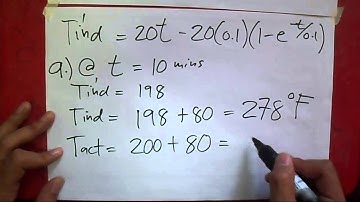 T'ind = 20t - 20(0.1)(1-e^t/0.1)
a.) @ t = 10 mins
T'ind = 198
Tind = 198 + 80 = 278°F
Tact = 200 + 80 =